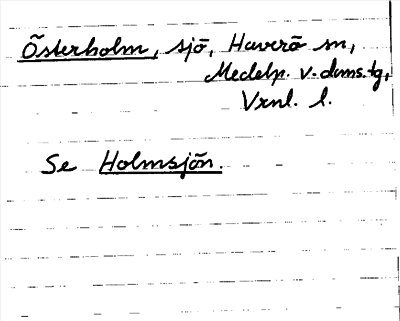 Österholm, sjö, Haverö sn,
Medelp. v. doms.tg,
Vrnl. l.
Se Holmsjön.